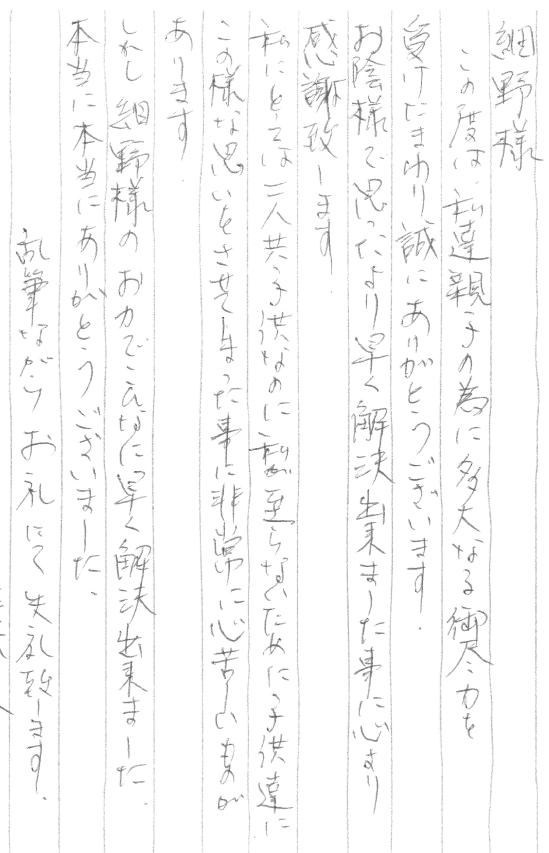 細野様
この度は、私達親子の為に多大なる御尽力を
受けたまわり誠にありがとうございます.
お陰様で思ったより早く解決出来ました事に心より
感謝致します.
私にとっては二人共子供なのに私が至らないために子供達に
この様な思いをさせてしまった事に非常に心苦しいものが
あります.
しかし細野様のお力でこんなに早く解決出来ました.
本当に本当にありがとうございました.
乱筆ながら お礼にて失礼致します.